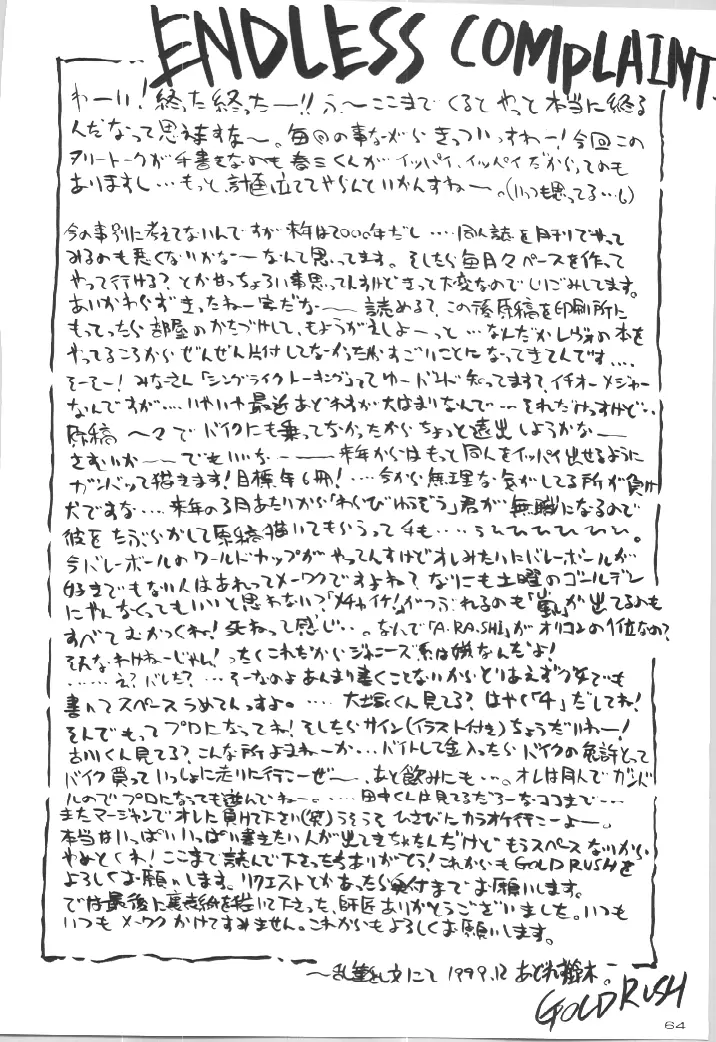 ENDLESS COMPLAINT
わーい!終った終ったー!!う〜ここまでくるとやっと本当に終る
んだなって思えますな〜。毎回の事ながらきっついっすわー!今回この
フリートークが手書きなのも春三くんがイッパイ、イッパイだからってのも
ありますし…もっと計画立ててやらんといかんすねー。(いつも思ってる…)
今の事別に考えてないんですが来年は2000年だし‥‥同人誌を月刊でやって
みるのも悪くないかなーなんて思ってます。そしたら毎月々ペースを作って
やって行ける?とかせっちょろい事思ってんすけどきって大変なのでしいごみしてます。
あいかわらずきったねー字だなー 読める?この後原稿を印刷所に
もってったら部屋のかたづけして、もようがえしよーっと…なんだかレヴォの本を
やってるころからぜんぜん片付してなかったからすごいことになってきてんです…
そーそー!みなさん「シングライクトーキング」ってゆーバンド知ってます?イチオーメジャー
なんですが‥‥いやいや最近あどれすが大はまりなんで…それだけっすけど‥
原稿 〜々でバイクにも乗ってなかったからちょっと遠出しようかなー
さむいかーーでもいいなーー 来年からはもっと同人をイッパイ出せるように
ガンバって描きます!目標年6冊!‥‥今から無理な気がしてる所が負け
犬ですな‥‥来年の3月あたりから「わらびゆうぞう」君が無職になるので
彼をたぶらかして原稿描いてもらうって手も…うひひひひひひ。
今バレーボールのワールドカップがやってんすけどオレみたいにバレーボールが
好きでもない人はあれってメーワクですよね?なにも土曜のゴールデン
にやんなくってもいいと思わない?「メチャイケ!」がつぶれるのも「嵐」が出てるのも
すべてむかつくね!死ねって感じ‥。なんで「A.RA.SHI」がオリコンの1位なの?
そんなわけねーじゃん!ったくこれだからジャニーズ系は嫌なんだよ!
……え?バレた?…そーなのよあんまり書くことないからとりあえず少女でも
書いてスペースうめてんっすよ。‥‥大塚くん見てる?はやく「4」だしてね!
そんでもってプロになってね!そしたらサイン(イラスト付き)ちょうだいねー!
古川くん見てる?こんな所よまねーか…バイトして金入ったらバイクの免許とって
バイク買っていっしょに走りに行こーぜ〜、あと飲みにも…。オレは同人でガンバ
ルのでプロになっても遊んでねー。‥‥田中くんは見てるだろーなココまで…
またマージャンでオレに負けて下さい(笑)うそうそひさびにカラオケ行こーよー。
本当はいっぱいいっぱい書きたい人が出てきちゃたんだけどもうスペースないから
やめとくね!ここまで読んで下さった方ありがとう!これからもGOLD RUSHを
よろしくお願いします。リクエストとかあったら受付までお願いします。
では最後に裏表紙を描いて下さった、師匠ありがとうございました。いつも
いつもメーワクかけてすみません。これからもよろしくお願いします。
〜乱筆乱文にて 1999.12 あどれす鈴木。
GOLD RUSH
64